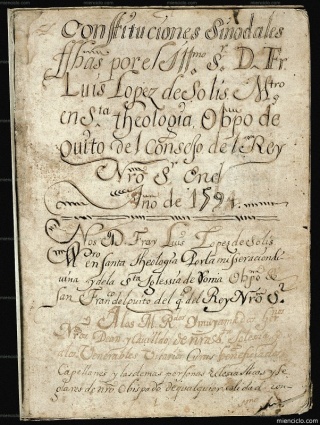 Constituciones Sinodales
fhas por el Illmo Sr. D. Fr
Luis Lopez de Solis, Mtro
en Sta theologia, Obpo de
Quito del Consejo del Rey
Nro Sr en el
Año de 1594.
Nos D. Fray Luis Lopez de Solis
Mtro en Santa Theologia Por la miseracion di
uina y de la Sta Iglesia de Roma Obpo de
San Franco del quito del q del Rey Nro Sr
A los M. Rdos
Dean y Cauildo de nra Sta Iglesia
Venerables Vicarios Curas beneficiados
Capellanes y las demas personas eclesiasticas y Se
glares de nro Obispado de qualquier calidad con
mienciclo.com